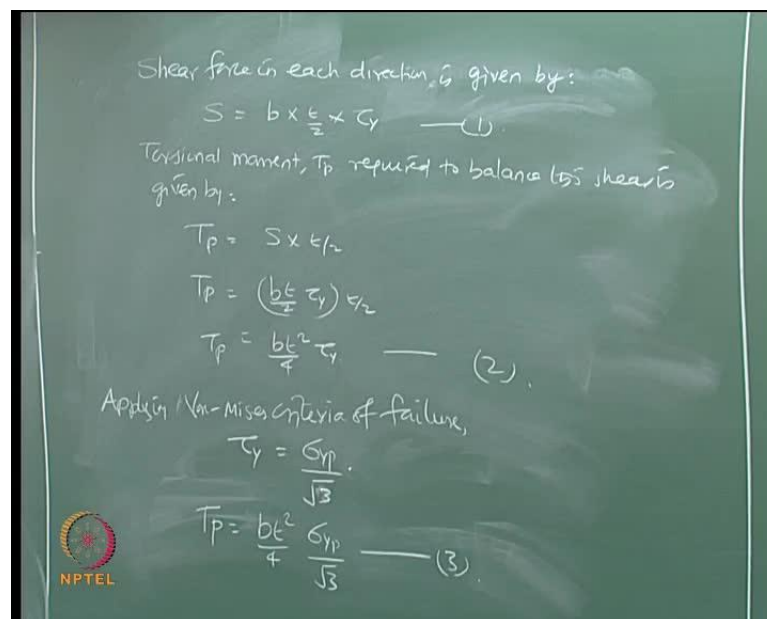 Shear force in each direction, is given by:
S = b × t/2 × τy —(1).
Torsional moment, Tp required to balance this shear is
given by:
Tp = S × t/2
Tp = (bt/2 τy) t/2
Tp = bt²/4 τy — (2).
Applying Von-Mises criteria of failure,
τy = σyp/√3.
Tp = bt²/4 σyp/√3 — (3).
NPTEL